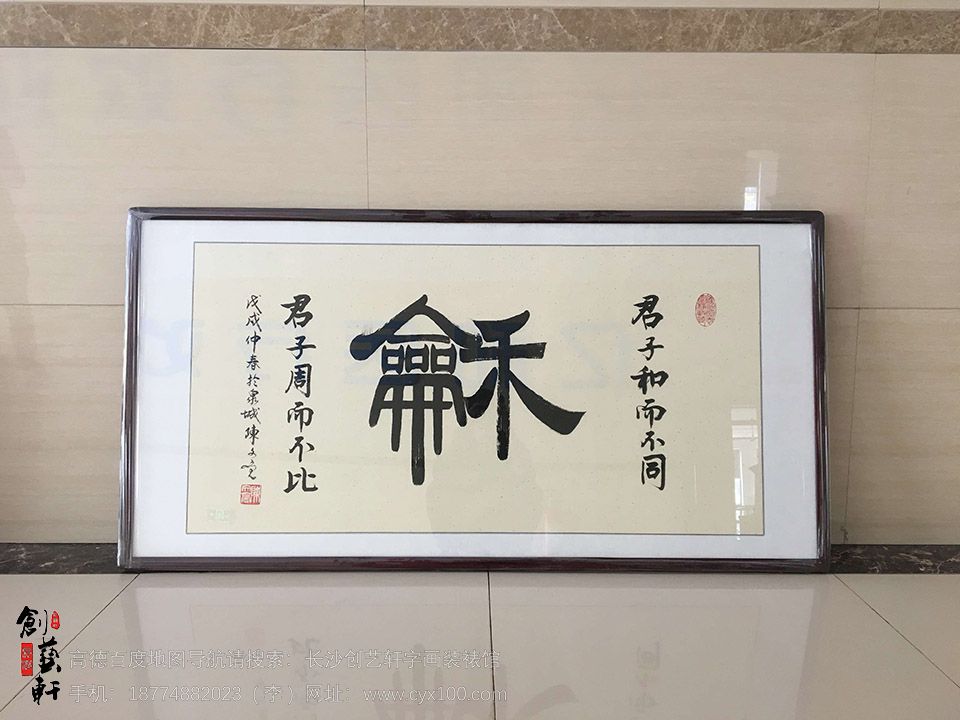 君子和而不同
龢
君子周而不比
戊戌仲春於泉城陳文
創藝軒
高德百度地图导航请搜索：长沙创艺轩字画装裱馆
手机：18774882023（李）网址：www.cyx100.com